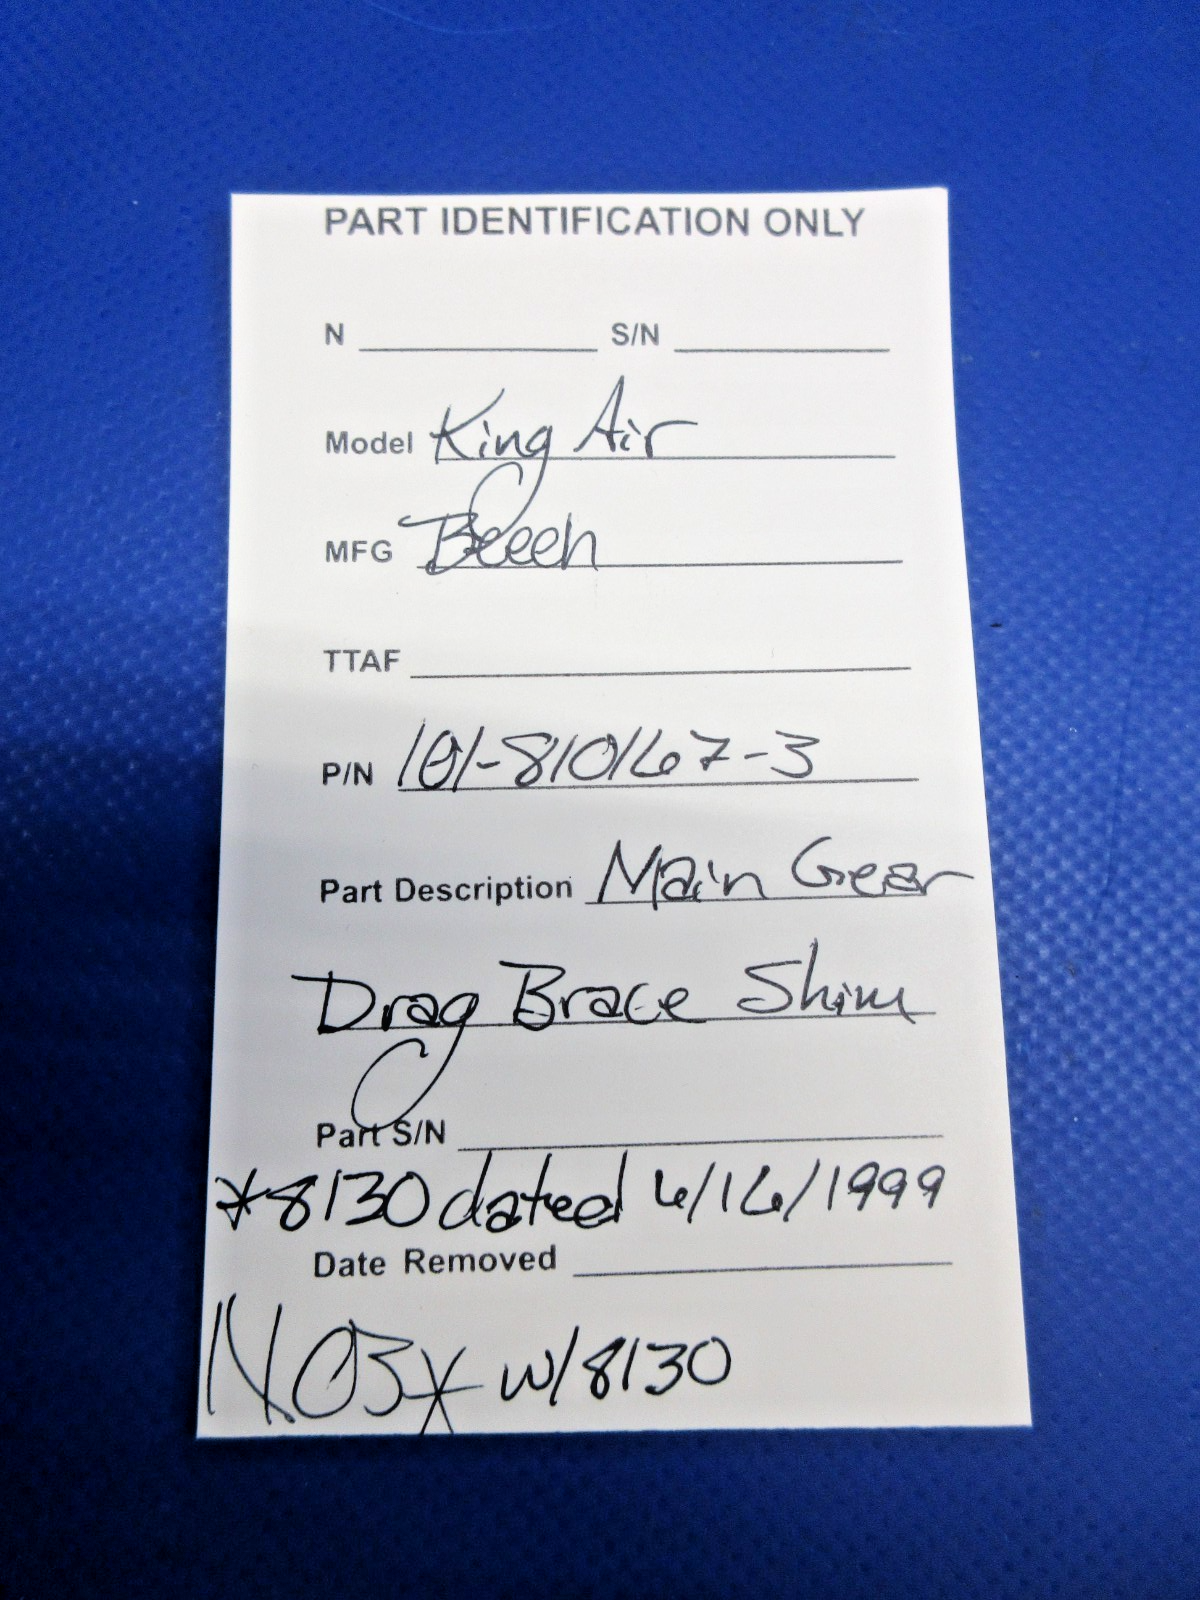 PART IDENTIFICATION ONLY
N S/N
Model King Air
MFG Beech
TTAF
P/N 101-810167-3
Part Description Main Gear
Drag Brace Shim
Part S/N
*8130 dated 6/16/1999
Date Removed
NOS* w/8130